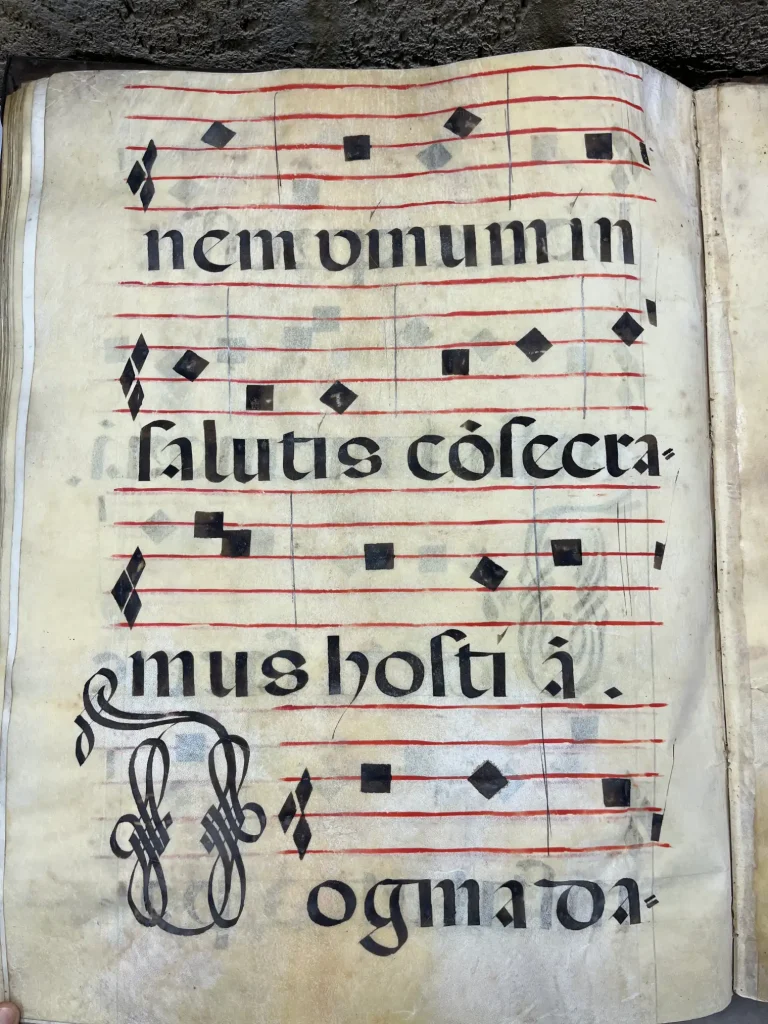 nem vinum in
ſalutis cõſecra⸗
mus hoſti ã .
Dogma da⸗